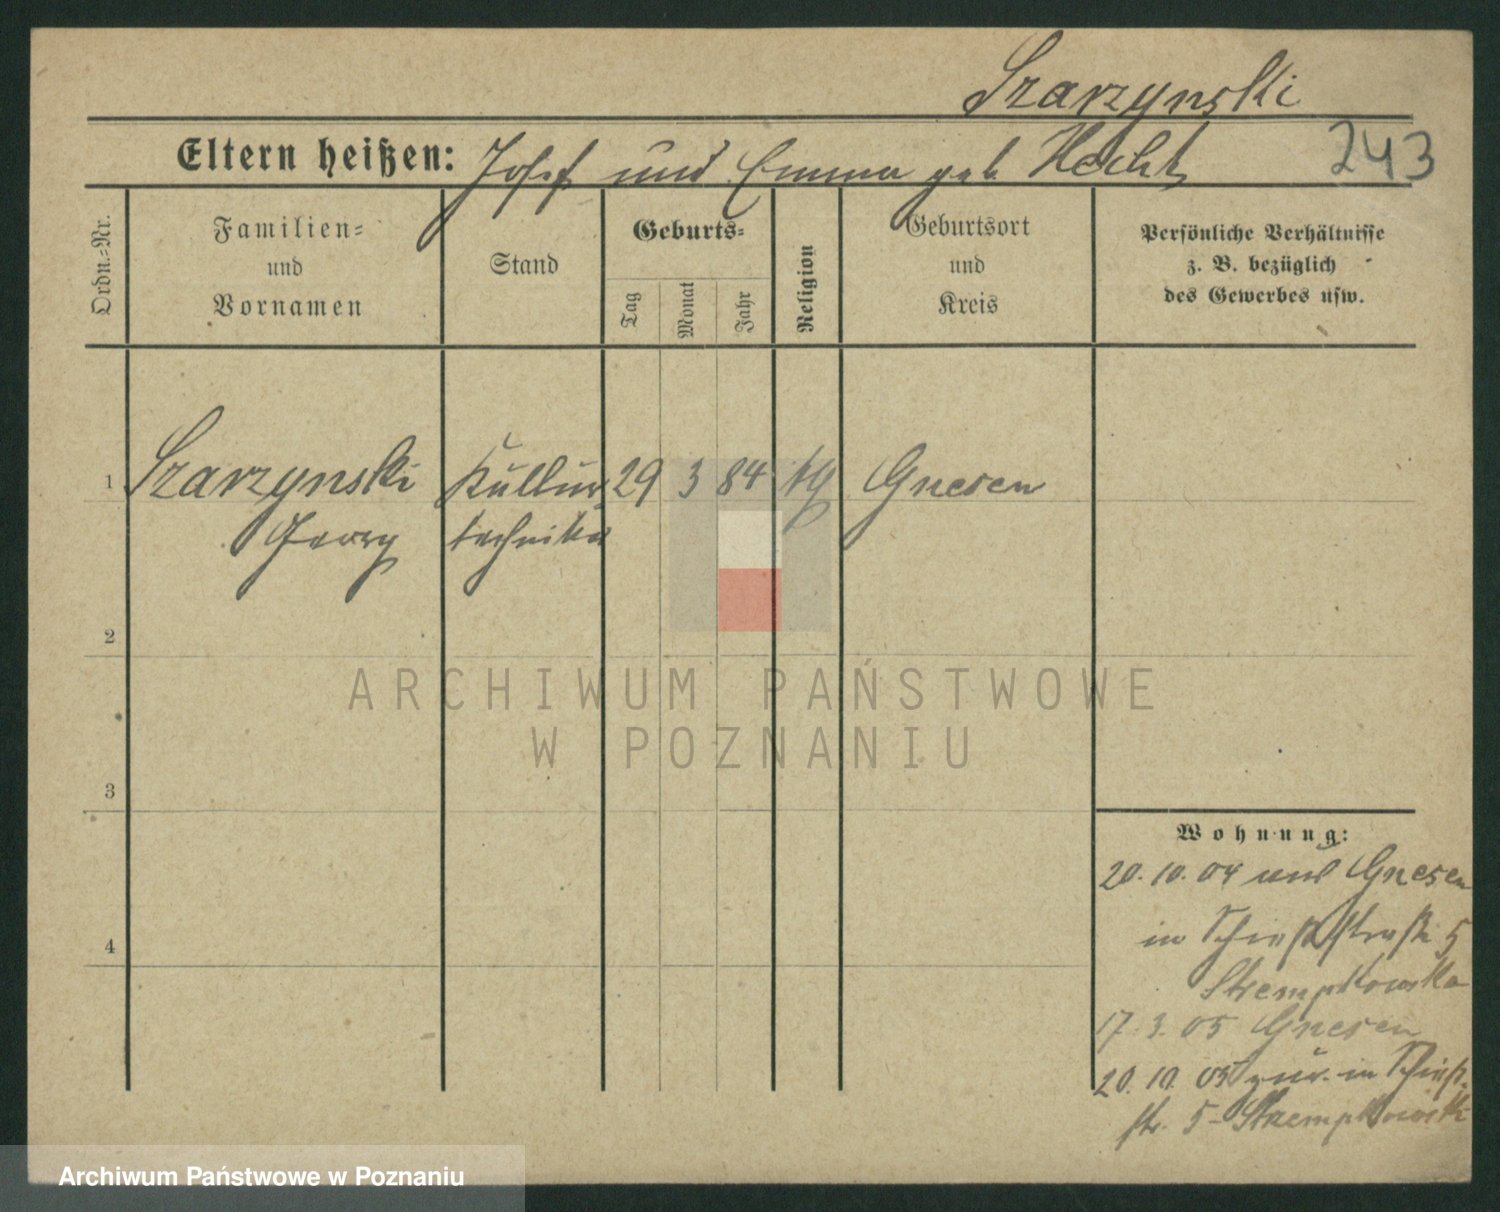 Szarzynski
Eltern heißen: Josef und Emma geb Hecht
243
Ordn.-Nr.
Familien-
und
Vornamen
Stand
Geburts-
Tag
Monat
Jahr
Religion
Geburtsort
und
Kreis
Persönliche Verhältnisse
z. B. bezüglich
des Gewerbes usw.
1 Szarzynski Kultur 29 3 84 kth Gnesen
Georg techniker
2
3
4
ARCHIWUM PAŃSTWOWE
W POZNANIU
Wohnung:
20. 10. 04 aus Gnesen
in Schießstraße 5
Strempkowska
17. 3. 05 Gnesen
20. 10. 05 zur. in Schieß-
str. 5 - Strempkowski
Archiwum Państwowe w Poznaniu